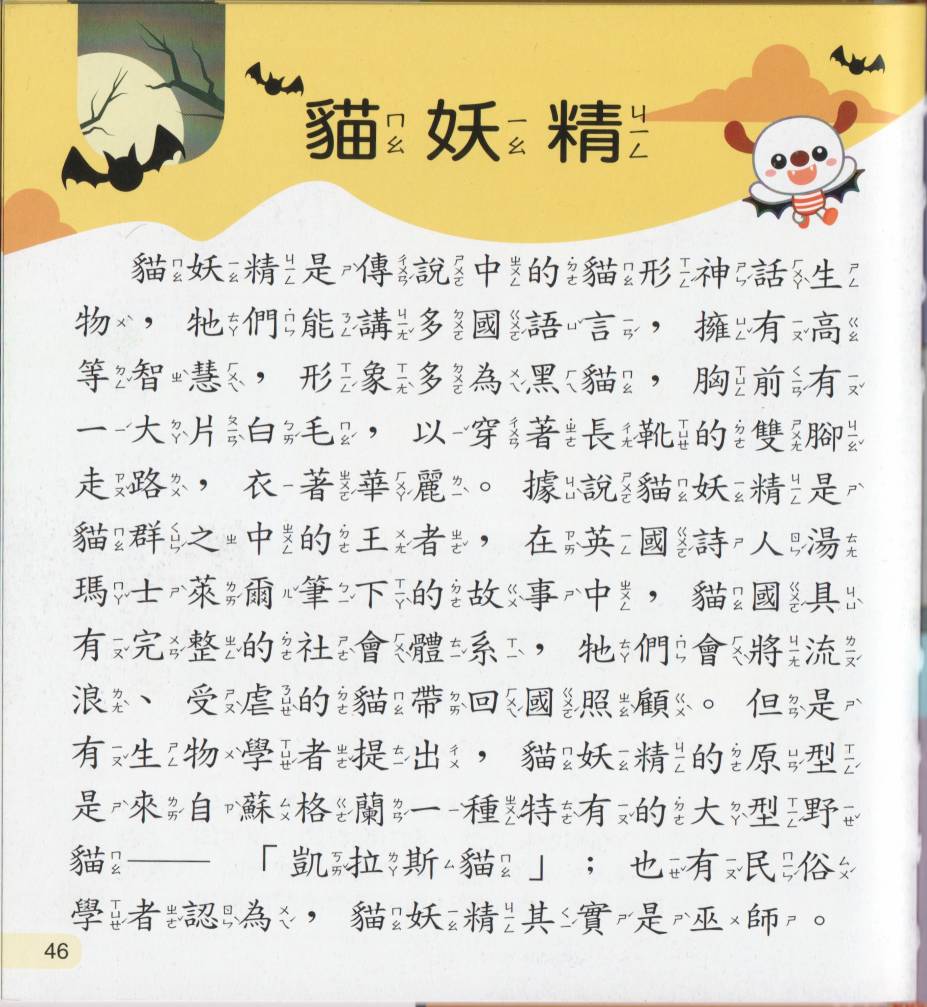 貓妖精
貓妖精是傳說中的貓形神話生
物，牠們能講多國語言，擁有高
等智慧，形象多為黑貓，胸前有
一大片白毛，以穿著長靴的雙腳
走路，衣著華麗。據說貓妖精是
貓群之中的王者，在英國詩人湯
瑪士萊爾筆下的故事中，貓國具
有完整的社會體系，牠們會將流
浪、受虐的貓帶回國照顧。但是
有生物學者提出，貓妖精的原型
是來自蘇格蘭一種特有的大型野
貓——「凱拉斯貓」；也有民俗
學者認為，貓妖精其實是巫師。
46